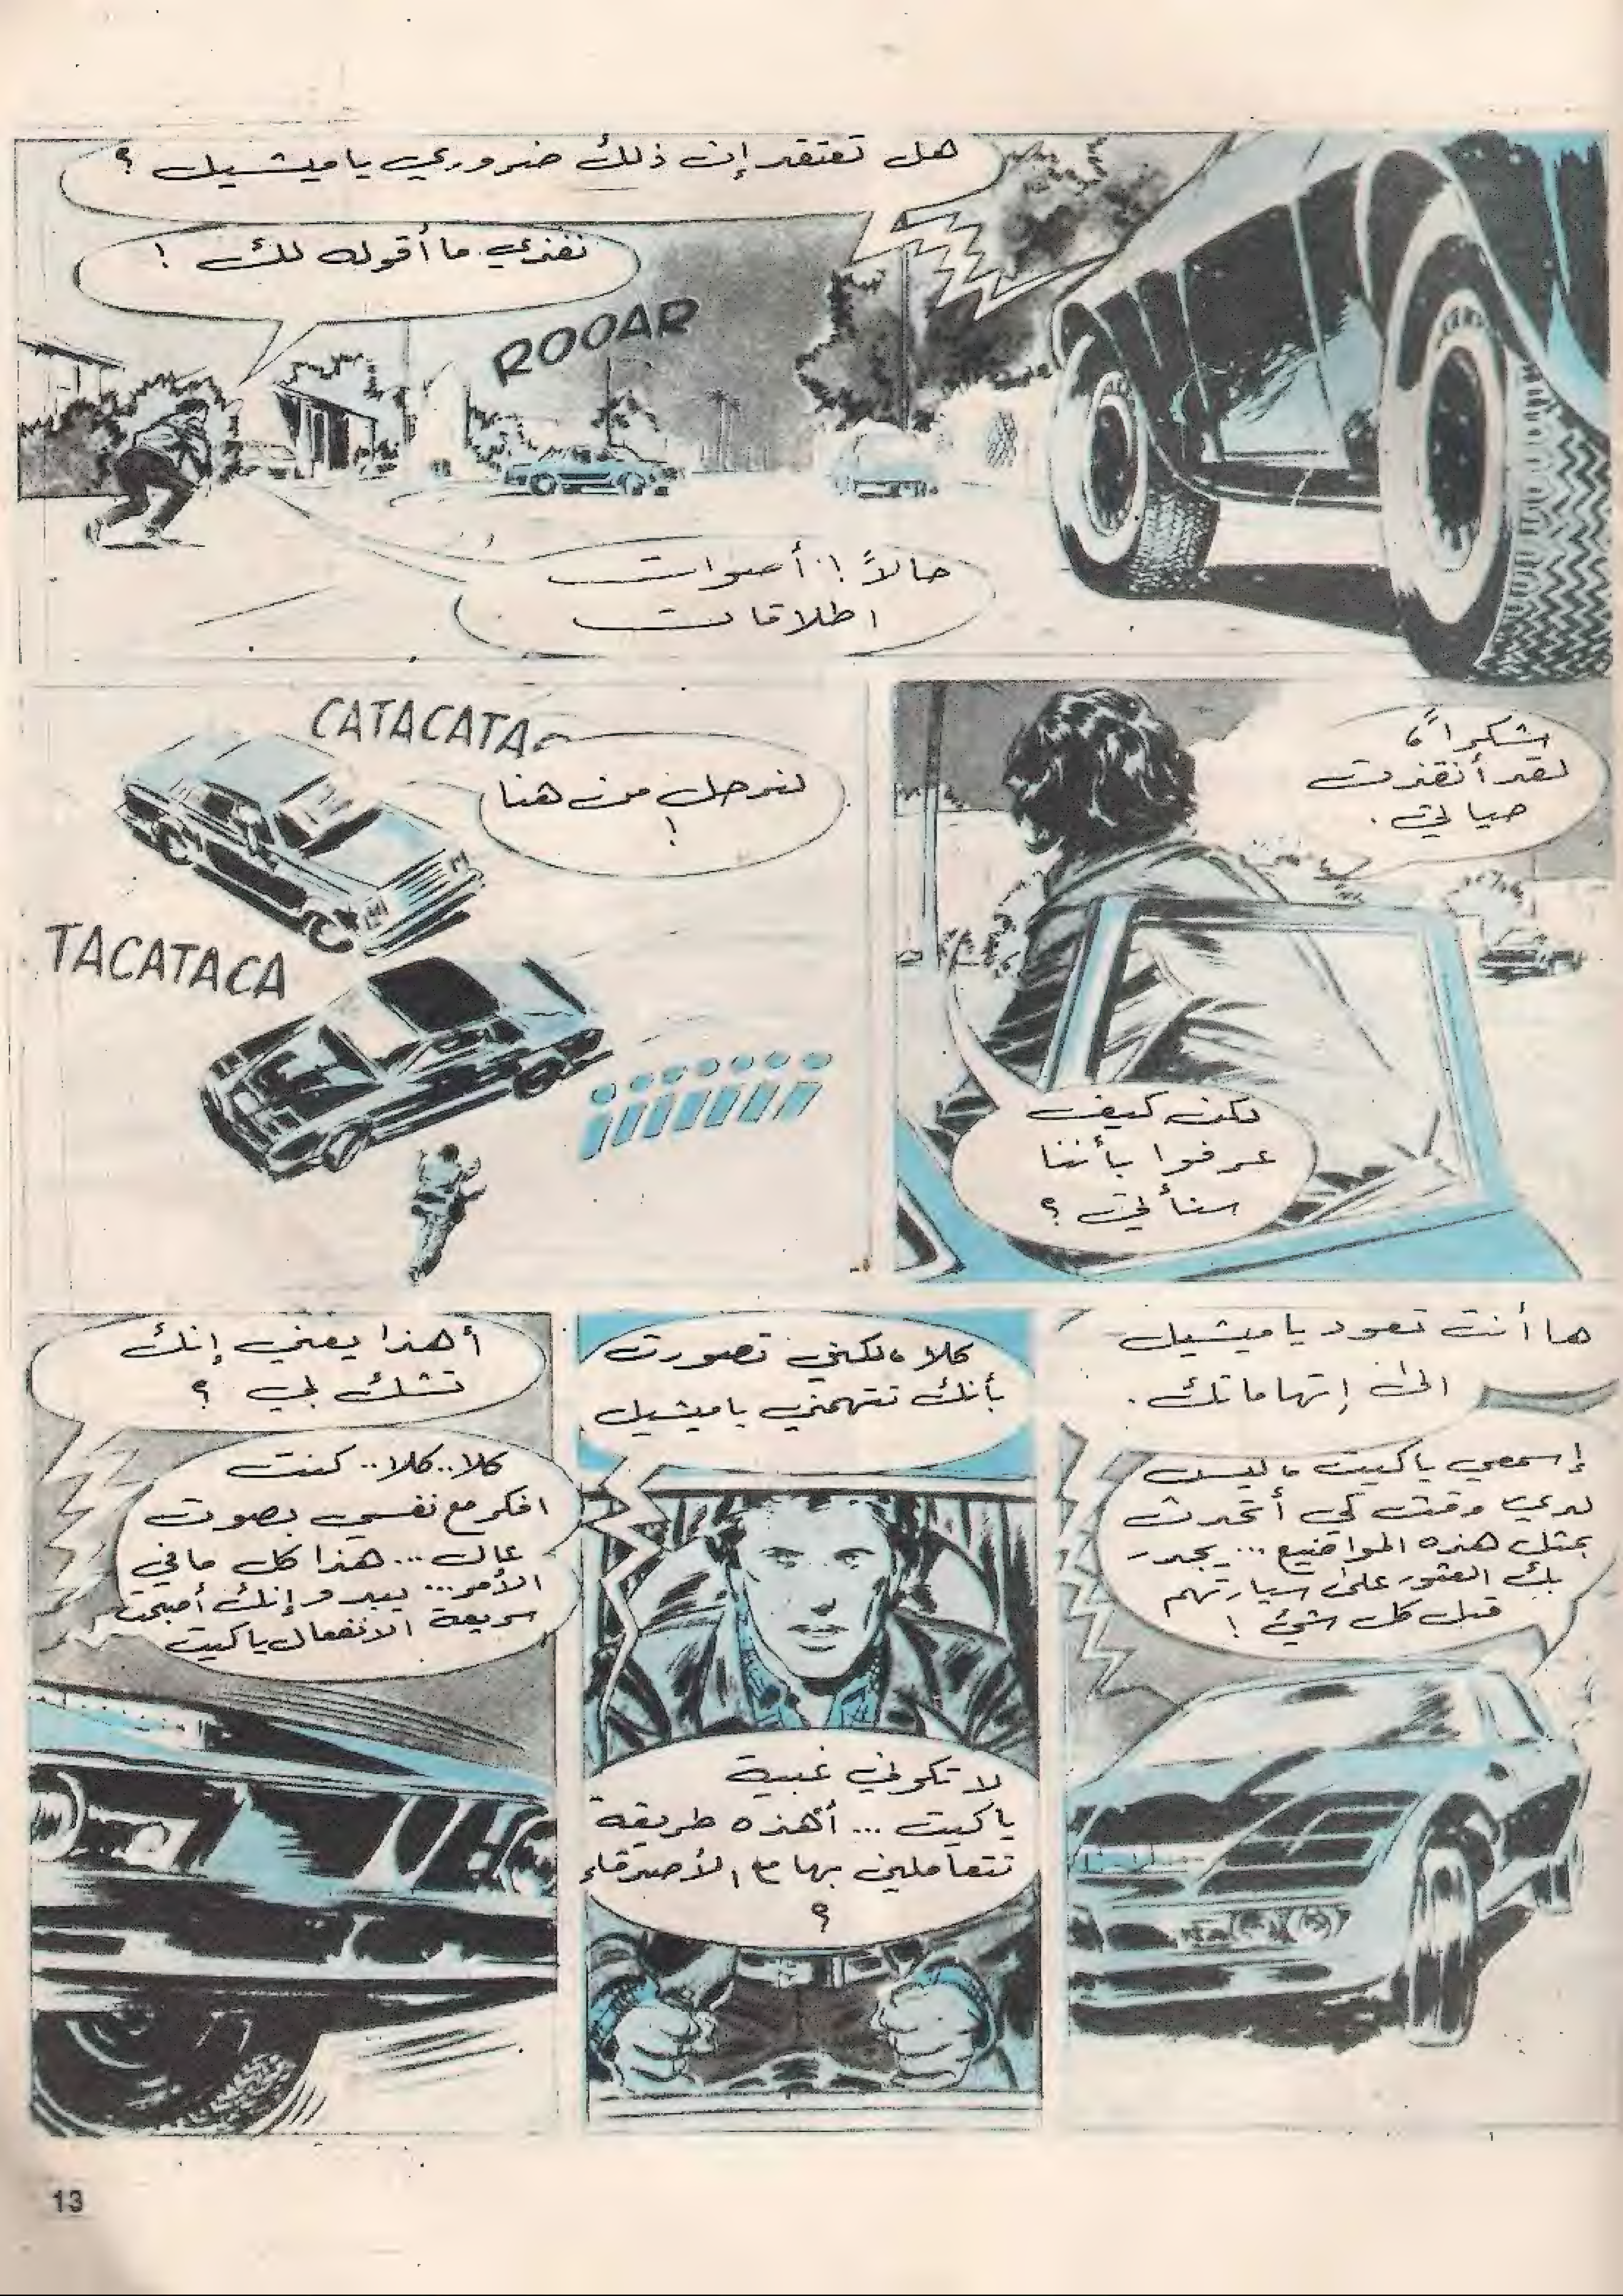 هل تعتقد إن ذلك ضروري يا ميشيل ؟
نفذي ما أقوله لك !
ROOAR
حالاً ! أصوات
اطلاقات
شكراً،
لقد أنقذت
حياتي .
لكن كيف
عرفوا بأننا
سنأتي ؟
CATACATA
لنرحل من هنا
!
TACATACA
ها أنت تعود يا ميشيل
الى إتهاماتك .
إسمعي يا كيت ، ليس
لدي وقت كي أتحدث
بمثل هذه المواضيع ... يجدر
بك العثور على سيارتهم
قبل كل شيء !
كلا ، لكني تصورت
بأنك تتهمني يا ميشيل
لا تكوني غبية
يا كيت ... أهذه طريقة
تتعاملين بها مع الأصدقاء
؟
أهذا يعني إنك
تشك بي ؟
كلا .. كلا .. كنت
افكر مع نفسي بصوت
عال ... هذا كل ما في
الأمر ... يبدو إنك أصبحت
سريعة الانفعال يا كيت
13